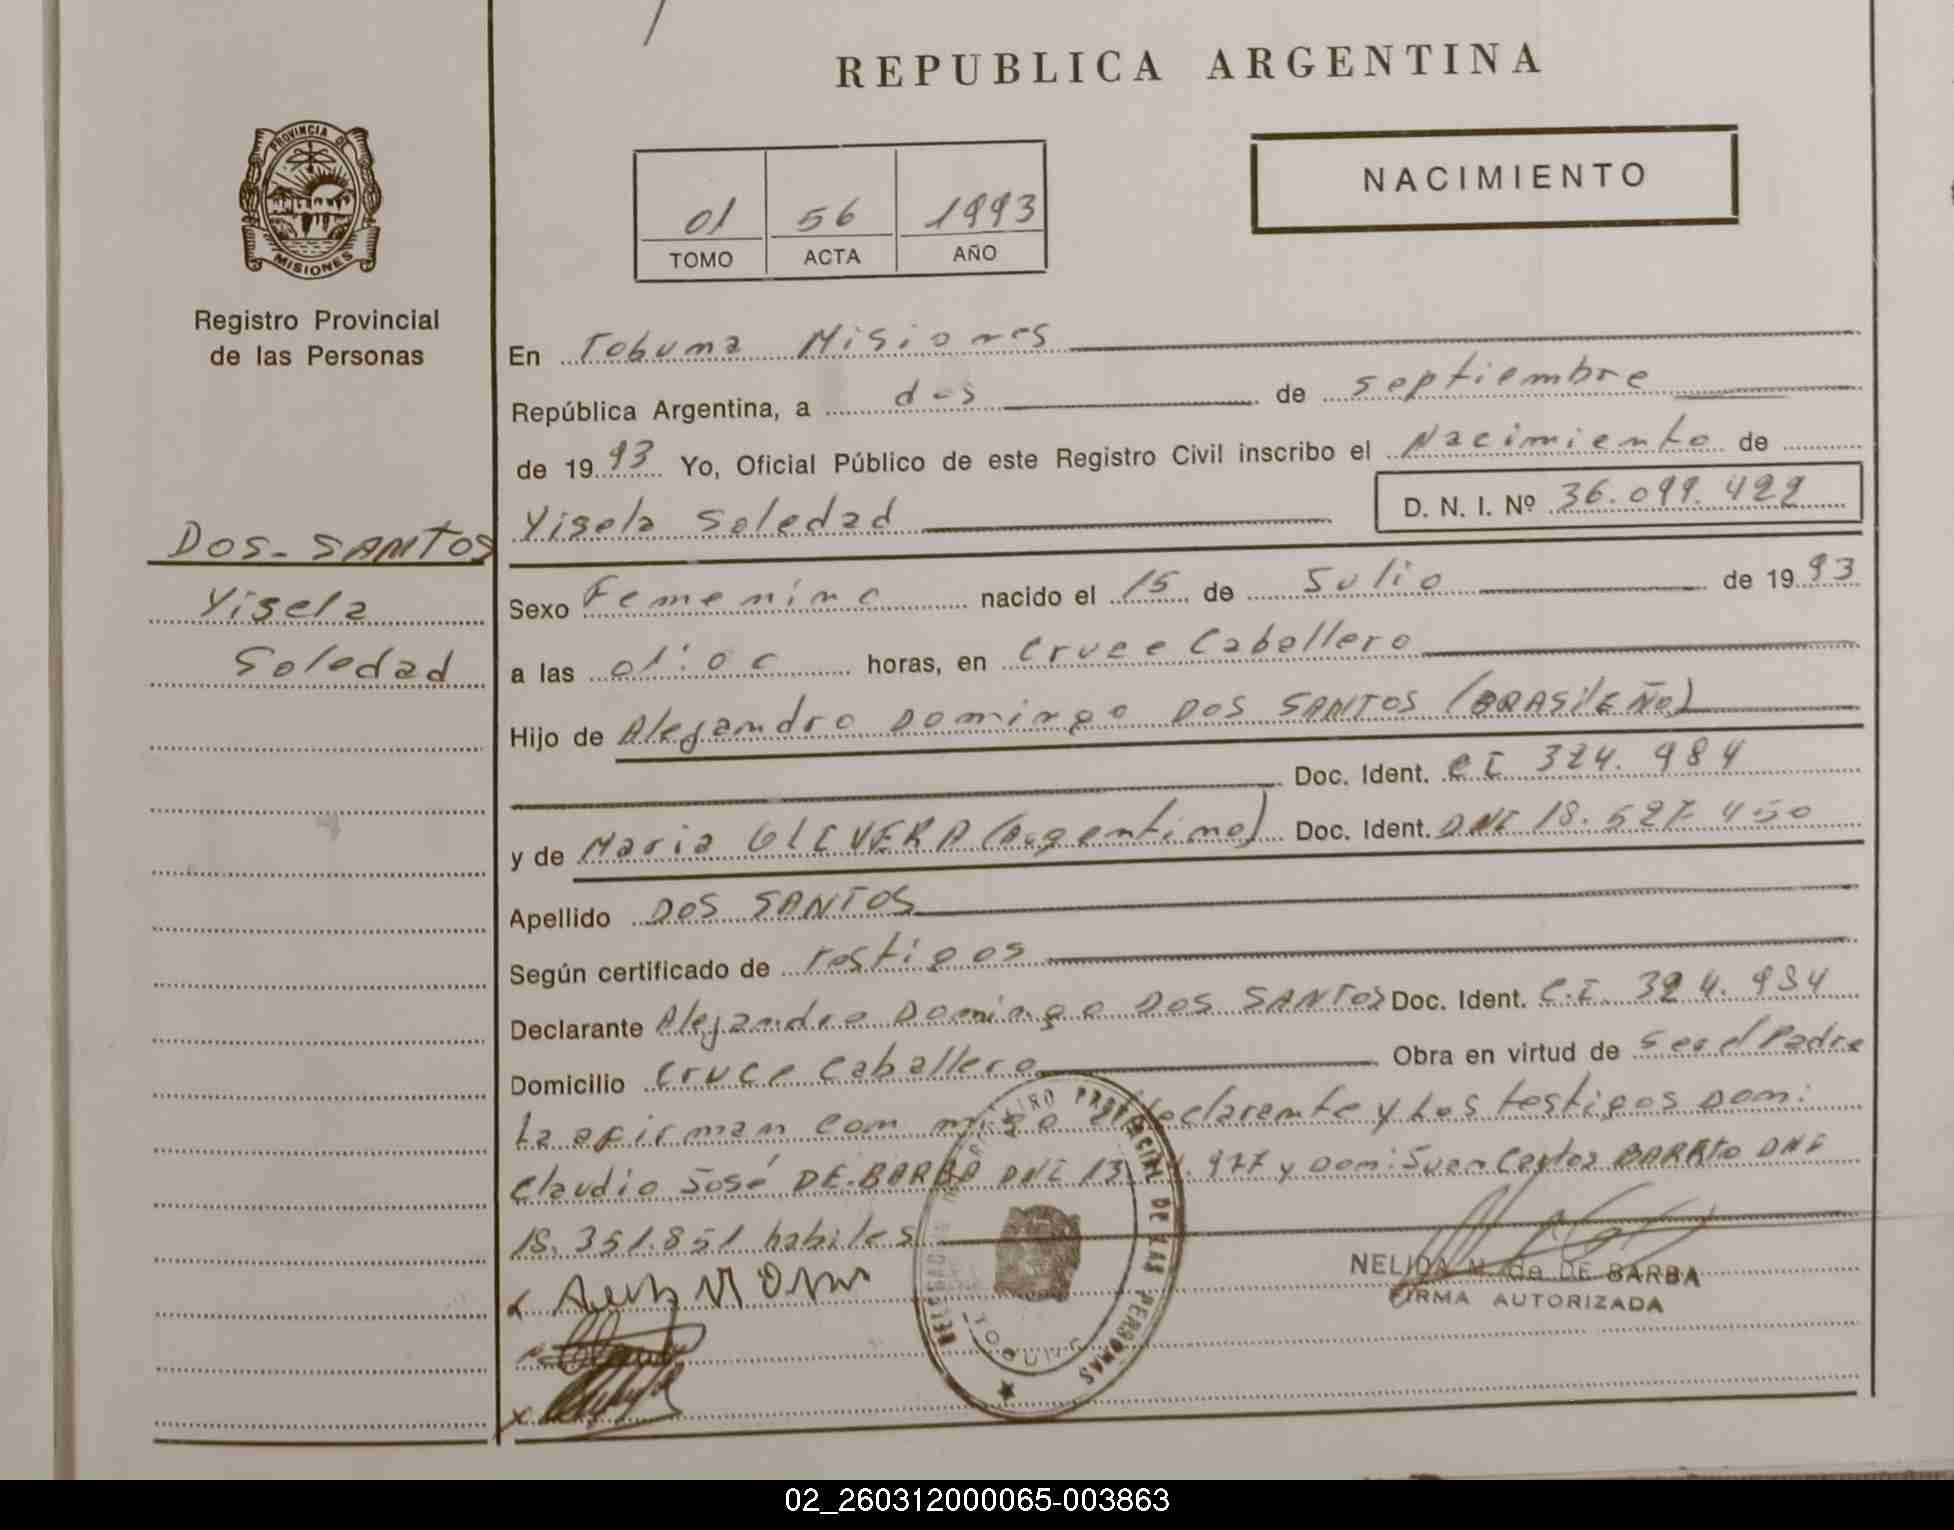 REPUBLICA ARGENTINA
PROVINCIA DE
MISIONES
Registro Provincial
de las Personas
NACIMIENTO
01 56 1993
TOMO ACTA AÑO
En Tobuna Misiones
República Argentina, a dos de septiembre
de 1993 Yo, Oficial Público de este Registro Civil inscribo el Nacimiento de
Yisela Soledad D. N. I. Nº 36.099.422
DOS-SANTOS
Yisela
Soledad
Sexo Femenino nacido el 15 de Julio de 1993
a las 01:00 horas, en Cruce Caballero
Hijo de Alejandro Domingo DOS SANTOS (BRASILEÑO)
Doc. Ident. CI 324.984
y de Maria OLIVERA (Argentina) Doc. Ident. DNI 18.527.450
Apellido DOS SANTOS
Según certificado de testigos
Declarante Alejandro Domingo DOS SANTOS Doc. Ident. C.I. 324.984
Domicilio Cruce Caballero Obra en virtud de ser el Padre
La afirman con migo el declarante y Los testigos Don:
Claudio José DE BARBA DNI 13 .977 y Don: Juan Carlos DNI
18.351.851 habiles
REGISTRO PROVINCIAL DE LAS PERSONAS
NELIDA de DE BARBA
FIRMA AUTORIZADA
02_260312000065-003863